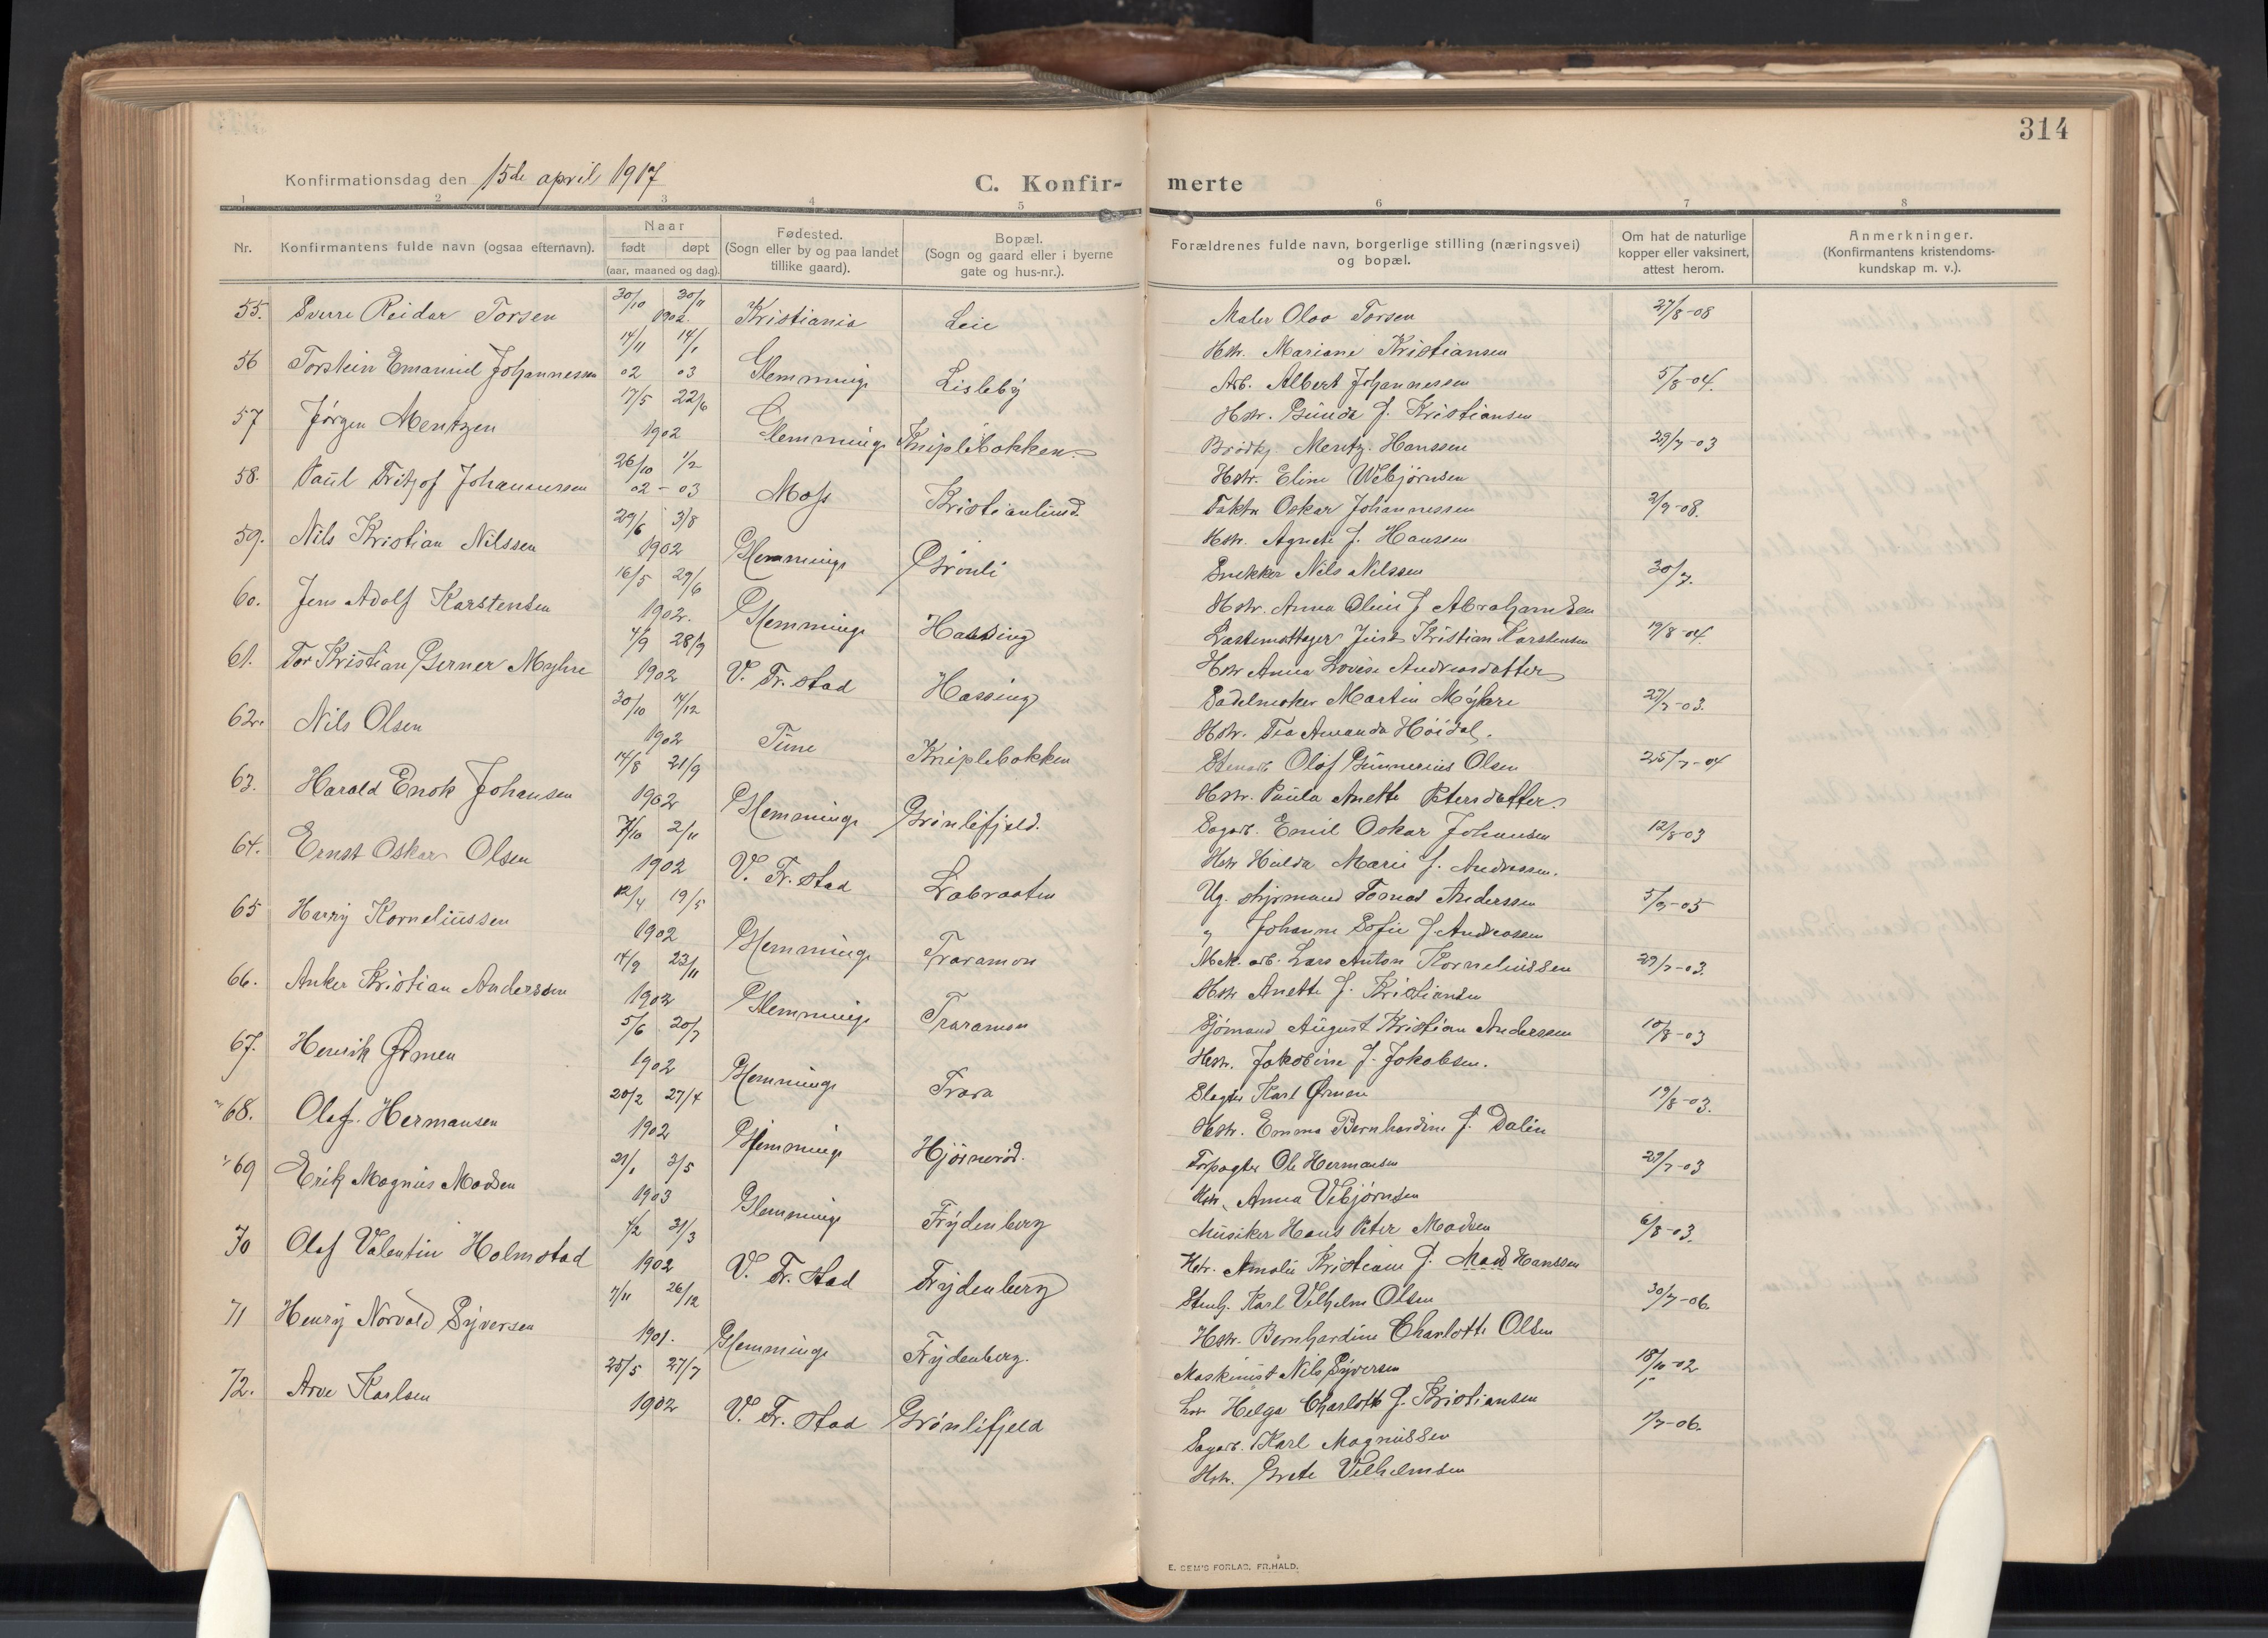 314
Konfirmationsdag den 15de april 1917
C. Konfir-
merte
1 2 3 4 5 6 7 8
Nr.
Konfirmantens fulde navn (ogsaa efternavn).
Naar
født døpt
(aar, maaned og dag).
Fødested.
(Sogn eller by og paa landet
tillike gaard).
Bopæl.
(Sogn og gaard eller i byerne
gate og hus-nr.).
Forældrenes fulde navn, borgerlige stilling (næringsvei)
og bopæl.
Om hat de naturlige
kopper eller vaksinert,
attest herom.
Anmerkninger.
(Konfirmantens kristendoms-
kundskap m. v.).
55. Sverre Reidar Torsen 30/10 30/11 1902. Kristiania Leie
Maler Olav Torsen 27/8-08
Hstr. Mariane Kristiansen
56 Torstein Emanuel Johannessen 14/11 02 14/1 03 Glemminge Lisleby
Arb. Albert Johannessen 5/8-04.
Hstr. Gunda f. Kristiansen
57 Jørgen Mentzen 17/5 22/6 1902 Glemminge Kniplebakken
Brødkj. Mentz Hanssen 29/7-03
Hstr. Eline Webjørnsen
58. Paul Fritjof Johannessen 26/10 02 - 1/2 03 Moss Kristianlund
Fakta Oskar Johannessen 2/9-08.
Hstr. Agnete f. Hanssen
59. Nils Kristian Nilssen 29/6 3/8 1902 Glemminge Grønli
Snekker Nils Nilssen 30/7.
Hstr. Anna Oline f Abrahamsen
60. Jens Adolf Karstensen 16/5 29/6 1902. Glemminge Hassing
Lastemottager Jens Kristian Karstensen 19/8-04.
Hstr Anna Lovise Andreasdatter
61. Tor Kristian Gerner Myhre 4/9 28/9 1902 V. Fr. stad Hassing
Sadelmaker Martin Myhre 27/7-03.
Hstr. Tea Amanda Høidal.
62. Nils Olsen 30/10 14/12 1902 Tune Kniplebakken
Stenarb Olof Gunnerius Olsen 25/7-04
Hstr. Paula Anette Petersdatter.
63. Harald Enok Johansen 14/8 21/9 1902 Glemminge Grønlifjeld.
Sagarb. Emil Oskar Johansen 12/8-03
Hstr Hulda Marie f. Andressen.
64. Ernst Oskar Olsen 7/10 2/11 1902 V. Fr. stad Labraaten
Ug. styrmand Tomas Anderssen 5/9-05
" Johanne Sofie f Andreassen
65 Harry Korneliussen 12/4 19/5 1902 Glemminge Traramon
Mek. arb. Lars Anton Korneliussen 29/7-03.
Hstr Anette f. Kristiansen
66. Anker Kristian Anderssen 14/9 23/11 1902 Glemminge Traramon
Sjømand August Kristian Anderssen 10/8-03
Hstr. Jakobine f. Jakobsen.
67. Henrik Ørmen 5/6 20/7 1902 Glemminge Trara
Slagter Karl Ørmen 19/8-03.
Hstr. Emma Bernhardine f. Dalin
68. Olaf. Hermansen 20/2 27/4 1902 Glemminge Hjørnerød.
Forpagter Ole Hermansen 29/7-03
Hstr. Anna Vebjørnsen
69 Erik Magnus Madsen 21/1 3/5 1903 Glemminge Frydenberg
Musiker Hans Peter Madsen 6/8-03.
Hstr. Amalie Kristiane f. Mads Hanssen
70 Olaf Valentin Holmstad 4/2 31/3 1902 V. Fr. stad Frydenberg
Stenh. Karl Vilhelm Olsen 30/7-06.
Hstr. Bernhardine Charlotte Olsen
71 Henry Norvald Syversen 7/11 26/12 1901. Glemminge Frydenberg.
Maskinist Nils Syversen 18/10-02
Hstr Helga Charlotte f. Kristiansen
72. Arve Karlsen 25/5 27/7 1902 V. Fr. stad Grønlifjeld
Sagarb. Karl Magnussen 1/7-06.
Hstr. Grete Vilhelmsen
E. SEM'S FORLAG, FR.HALD.